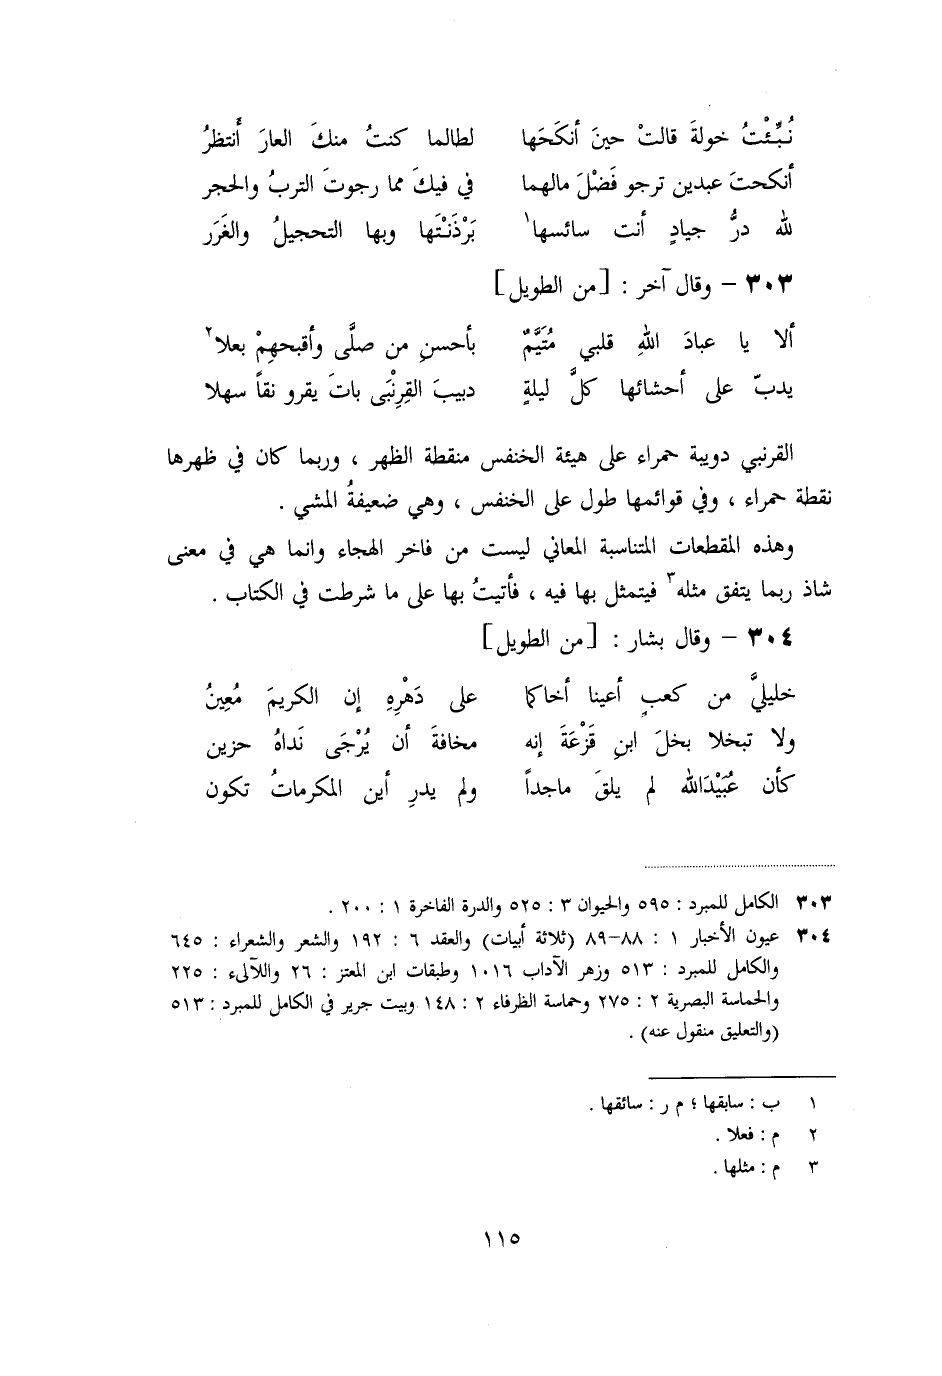 نُبِّئْتُ خولةَ قالتْ حينَ أنكَحَها لطالما كنتُ منكَ العارَ أَنتظرُ
أنكحتَ عبدين ترجو فَضْلَ مالهما في فيكَ مما رجوتَ التربُ والحجر
لله درُّ جيادٍ أنت سائسها١ بَرْذَنْتَها وبها التحجيلُ والغَرَر
٣٠٣ - وقال آخر : [من الطويل]
ألا يا عبادَ اللهِ قلبي مُتَيَّمٌ بأحسنِ من صلَّى وأقبحهِمْ بعلا٢
يدبّ على أحشائها كلَّ ليلةٍ دبيبَ القِرِنْبَى باتَ يقرو نقاً سهلا
القرنبي دويبة حمراء على هيئة الخنفس منقطة الظهر ، وربما كان في ظهرها
نقطة حمراء ، وفي قوائمها طول على الخنفس ، وهي ضعيفةُ المشي .
وهذه المقطعات المتناسبة المعاني ليست من فاخر الهجاء وانما هي في معنى
شاذ ربما يتفق مثله٣ فيتمثل بها فيه ، فأتيتُ بها على ما شرطت في الكتاب .
٣٠٤ - وقال بشار : [من الطويل]
خليليَّ من كعبٍ أعينا أخاكما على دَهْرِهِ إن الكريمَ مُعِينُ
ولا تبخلا بخلَ ابنِ قَزْعَةَ إنه مخافةَ أن يُرْجَى نَداهُ حزين
كأن عُبَيْدَالله لم يلقَ ماجداً ولم يدرِ أين المكرماتُ تكون
٣٠٣ الكامل للمبرد : ٥٩٥ والحيوان ٣ : ٥٢٥ والدرة الفاخرة ١ : ٢٠٠ .
٣٠٤ عيون الأخبار ١ : ٨٨-٨٩ (ثلاثة أبيات) والعقد ٦ : ١٩٢ والشعر والشعراء : ٦٤٥
والكامل للمبرد : ٥١٣ وزهر الآداب ١٠١٦ وطبقات ابن المعتز : ٢٦ واللآلىء : ٢٢٥
والحماسة البصرية ٢ : ٢٧٥ وحماسة الظرفاء ٢ : ١٤٨ وبيت جرير في الكامل للمبرد : ٥١٣
(والتعليق منقول عنه) .
١ ب : سابقها ؛ م ر : سائقها .
٢ م : فعلا .
٣ م : مثلها .
١١٥